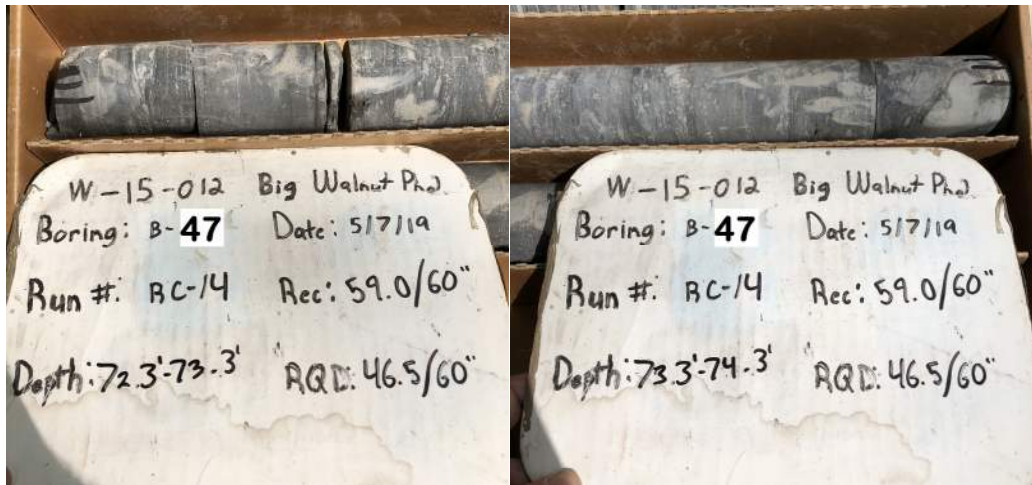 W-15-012 Big Walnut Ph2
Boring: B-47 Date: 5/7/19
Run #: RC-14 Rec: 59.0/60"
Depth: 72.3'-73.3' RQD: 46.5/60"
W-15-012 Big Walnut Ph2
Boring: B-47 Date: 5/7/19
Run #: RC-14 Rec: 59.0/60"
Depth: 73.3'-74.3' RQD: 46.5/60"